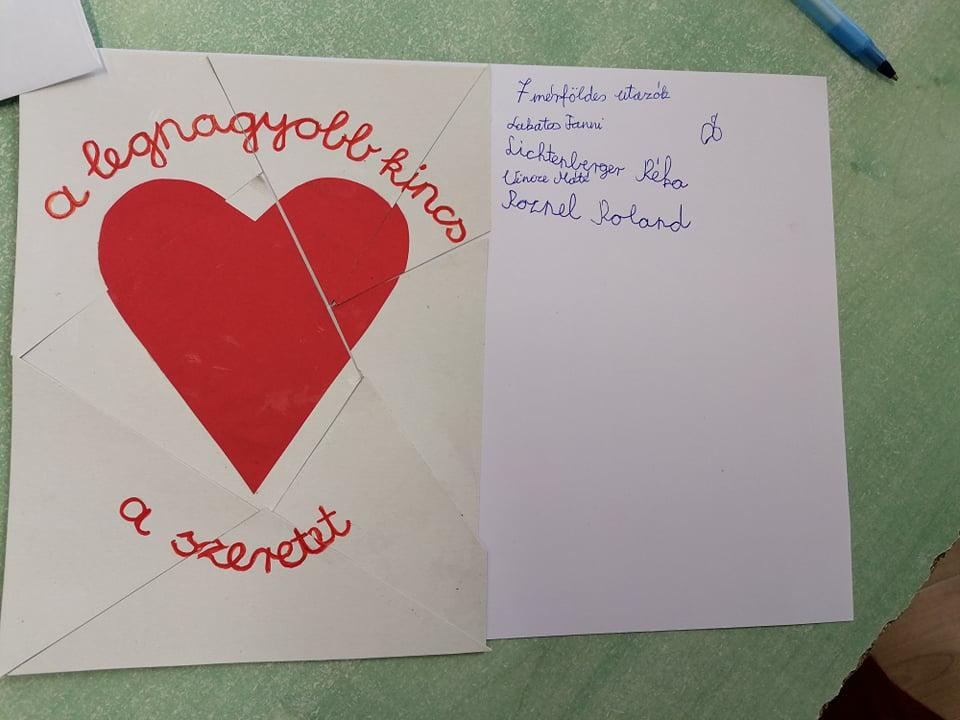 a legnagyobb kincs
a szeretet
7 mérföldes utazók
Lakatos Fanni
Lichtenberger Réka
Vincze Máté
Roznel Roland